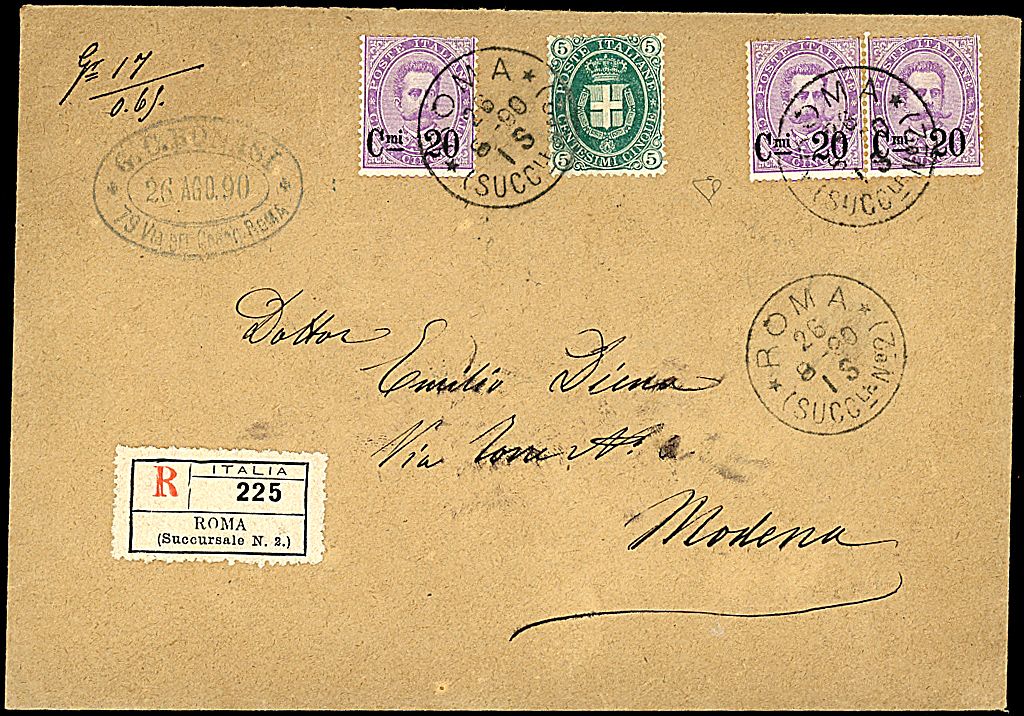 Gr 17
0.65.
26 AGO. 90
73 Via del Corso. ROMA
POSTE ITALIANE
Cmi 20
ROMA
26
8-90
1 S
(SUCCLE N. 2)
5 5
POSTE ITALIANE
CENTESIMI CINQUE
5 5
POSTE ITALIANE
Cmi 20
POSTE ITALIANE
Cmi 20
ROMA
(SUCCLE N. 2)
ROMA
26
8-90
1 S
(SUCCLE N. 2)
Dottor
Emilio Diena
Via
Modena
R
ITALIA
225
ROMA
(Succursale N. 2.)